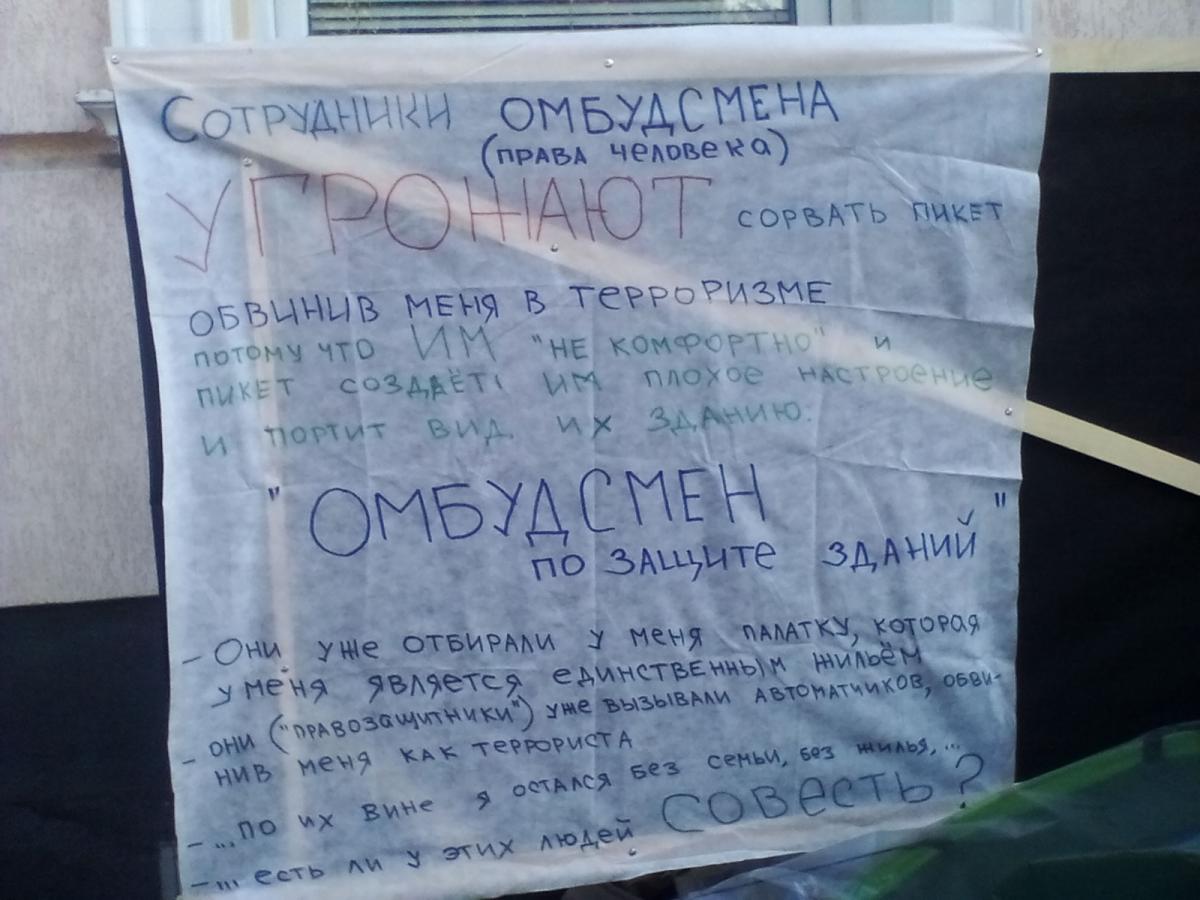 СОТРУДНИКИ ОМБУДСМЕНА
(ПРАВА ЧЕЛОВЕКА)
УГРОЖАЮТ СОРВАТЬ ПИКЕТ
ОБВИНИВ МЕНЯ В ТЕРРОРИЗМЕ
ПОТОМУ ЧТО ИМ "НЕ КОМФОРТНО" И
ПИКЕТ СОЗДАЁТ ИМ ПЛОХОЕ НАСТРОЕНИЕ
И ПОРТИТ ВИД ИХ ЗДАНИЮ.
"ОМБУДСМЕН
ПО ЗАЩИТЕ ЗДАНИЙ"
- ОНИ УЖЕ ОТБИРАЛИ У МЕНЯ ПАЛАТКУ, КОТОРАЯ
У МЕНЯ ЯВЛЯЕТСЯ ЕДИНСТВЕННЫМ ЖИЛЬЁМ
- ОНИ ("ПРАВОЗАЩИТНИКИ") УЖЕ ВЫЗЫВАЛИ АВТОМАТЧИКОВ, ОБВИ-
НИВ МЕНЯ КАК ТЕРРОРИСТА
- ...ПО ИХ ВИНЕ Я ОСТАЛСЯ БЕЗ СЕМЬИ, БЕЗ ЖИЛЬЯ,...
- ... ЕСТЬ ЛИ У ЭТИХ ЛЮДЕЙ СОВЕСТЬ?